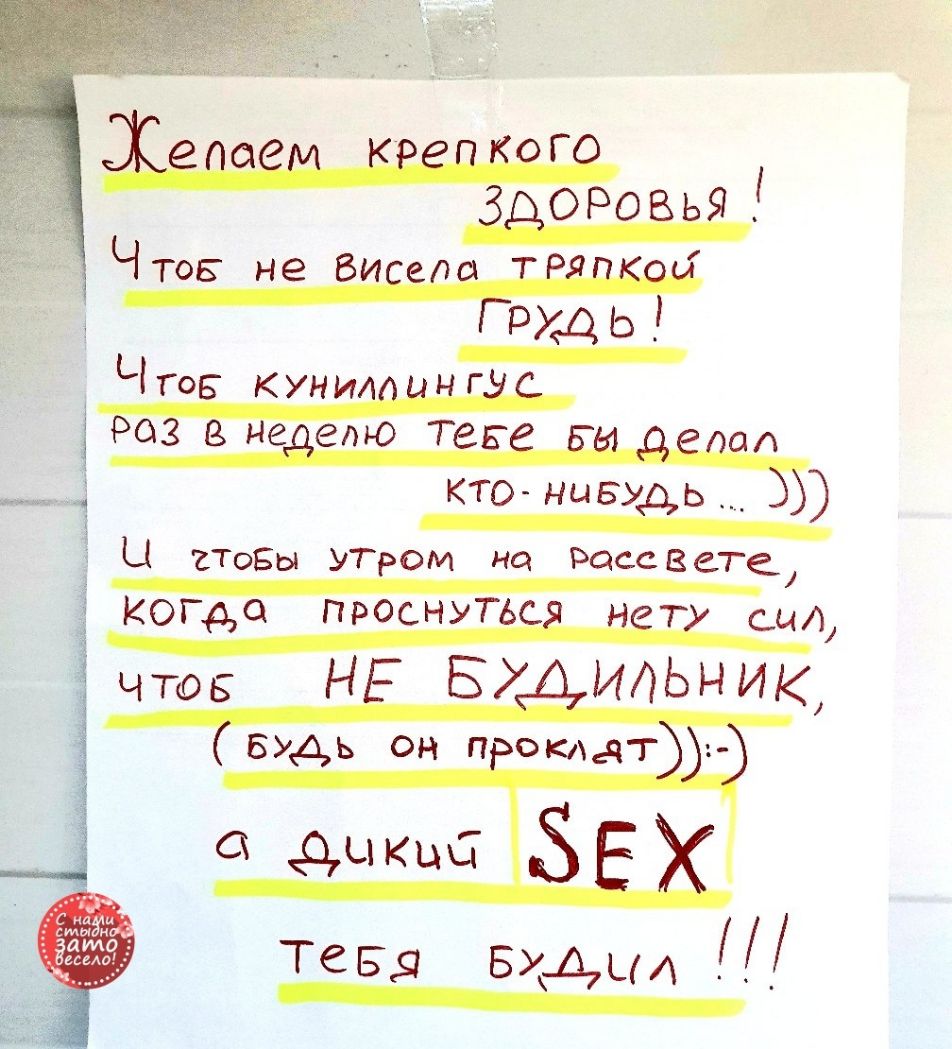 Желаем крепкого
здоровья!
Чтоб не висела тряпкой
грудь!
Чтоб куниллингус
раз в неделю тебе бы делал
кто-нибудь...)))
И чтобы утром на рассвете,
когда проснуться нету сил,
чтоб НЕ БУДИЛЬНИК,
(будь он проклят)):-)
а дикий SEX
тебя будил!!!
С нами
стыдно
зато
весело!